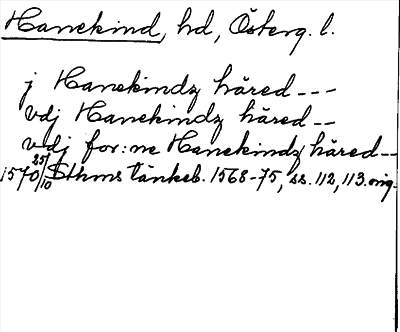 Hanekind, hd, Österg. l.
j Hanekindz häred ---
vdj Hanekindz häred --
vdj for:ne Hanekindz häred --
1570 25/10 Sthms Tänkeb. 1568-75, ss. 112, 113. orig.